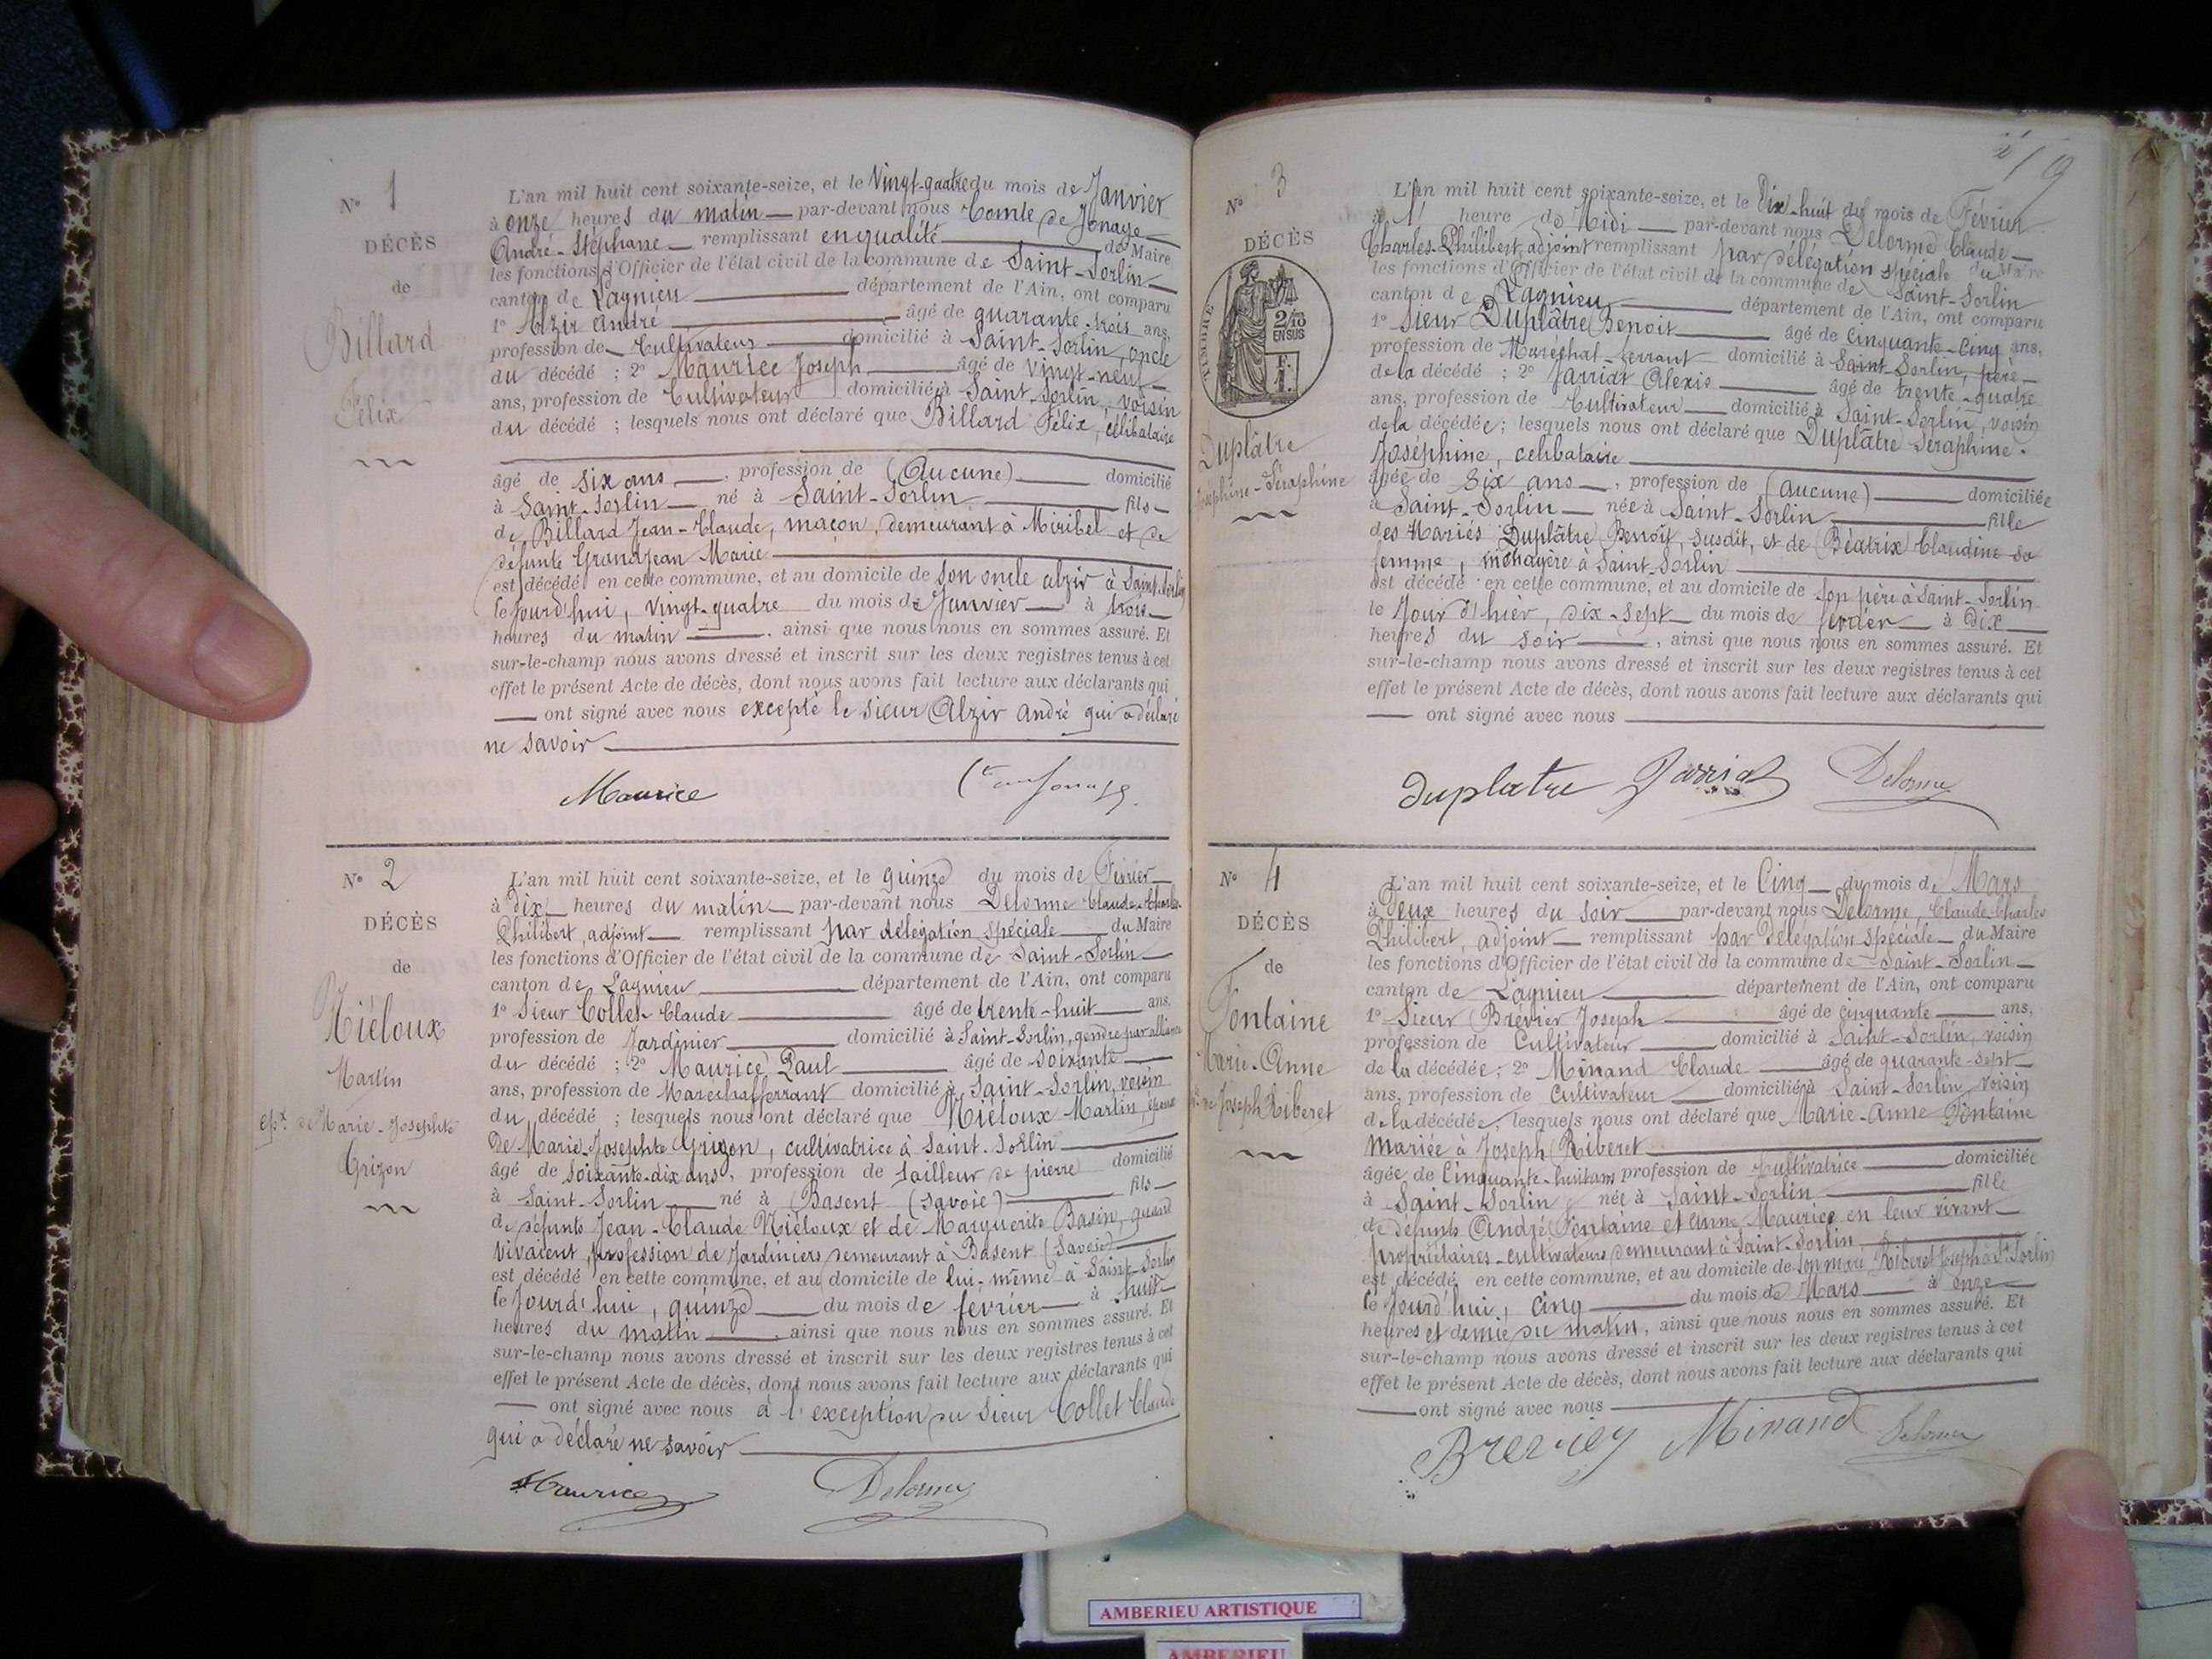 N° 1
DÉCÈS
de
Billard
Félix
L'an mil huit cent soixante-seize, et le Vingt-quatre du mois de Janvier
à onze heures du matin par-devant nous Comte de Jonage
André-Stéphane remplissant en qualité de Maire
les fonctions d'Officier de l'état civil de la commune de Saint-Sorlin
canton de Lagnieu département de l'Ain, ont comparu
1° Alzir André âgé de quarante-trois ans,
profession de Cultivateur domicilié à Saint-Sorlin, oncle
du décédé ; 2° Maurice Joseph âgé de vingt-neuf
ans, profession de Cultivateur domicilié à Saint-Sorlin, voisin
du décédé ; lesquels nous ont déclaré que Billard Félix, célibataire
âgé de six ans, profession de (Aucune) domicilié
à Saint-Sorlin né à Saint-Sorlin fils
de Billard Jean-Claude, maçon, demeurant à Miribel et de
défunte Grandjean Marie
est décédé en cette commune, et au domicile de son oncle alzir à Saint-Sorlin
le jourd'hui, vingt-quatre du mois de Janvier à trois
heures du matin, ainsi que nous nous en sommes assuré. Et
sur-le-champ nous avons dressé et inscrit sur les deux registres tenus à cet
effet le présent Acte de décès, dont nous avons fait lecture aux déclarants qui
ont signé avec nous excepté le sieur Alzir André qui a déclaré
ne savoir
Maurice
N° 2
DÉCÈS
de
Niéloux
Martin
epx de Marie-Josephte
Grizon
L'an mil huit cent soixante-seize, et le quinze du mois de Février
à dix heures du matin par-devant nous Delorme Claude-Charles
Philibert, adjoint remplissant par délégation spéciale du Maire
les fonctions d'Officier de l'état civil de la commune de Saint-Sorlin
canton de Lagnieu département de l'Ain, ont comparu
1° Sieur Collet Claude âgé de trente-huit ans,
profession de Jardinier domicilié à Saint-Sorlin, gendre par alliance
du décédé ; 2° Maurice Paul âgé de soixante
ans, profession de Maréchal-ferrant domicilié à Saint-Sorlin, voisin
du décédé ; lesquels nous ont déclaré que Niéloux Martin, époux
de Marie-Josephte Grizon, cultivatrice à Saint-Sorlin
âgé de soixante-dix ans, profession de tailleur de pierre domicilié
à Saint-Sorlin né à Basent (Savoie) fils
de défunts Jean-Claude Niéloux et de Marguerite Basin, quand
vivaient, profession de Jardiniers demeurant à Basent (Savoie)
est décédé en cette commune, et au domicile de lui-même à Saint-Sorlin
le jourd'hui, quinze du mois de février à huit
heures du matin, ainsi que nous nous en sommes assuré. Et
sur-le-champ nous avons dressé et inscrit sur les deux registres tenus à cet
effet le présent Acte de décès, dont nous avons fait lecture aux déclarants qui
ont signé avec nous à l'exception du sieur Collet Claude
qui a déclaré ne savoir
Maurice Delorme
219
N° 3
DÉCÈS
TIMBRE
2/10
EN SUS
Duplâtre
Joséphine-Séraphine
L'an mil huit cent soixante-seize, et le Dix-huit du mois de Février
à 1 heure de Midi par-devant nous Delorme Claude
Charles-Philibert, adjoint remplissant par délégation spéciale du Maire
les fonctions d'Officier de l'état civil de la commune de Saint-Sorlin
canton de Lagnieu département de l'Ain, ont comparu
1° Sieur Duplâtre Benoit âgé de Cinquante-Cinq ans,
profession de Maréchal-ferrant domicilié à Saint-Sorlin, père
de la décédé ; 2° Jarriat Alexis âgé de trente-quatre
ans, profession de Cultivateur domicilié à Saint-Sorlin, voisin
de la décédée ; lesquels nous ont déclaré que Duplâtre Séraphine-
Joséphine, célibataire
âgée de Six ans, profession de (aucune) domiciliée
à Saint-Sorlin née à Saint-Sorlin fille
des Mariés Duplâtre Benoit, susdit, et de Béatrix Claudine sa
femme, ménagère à Saint-Sorlin
est décédé en cette commune, et au domicile de son père à Saint-Sorlin
le Jour d'hier, dix-sept du mois de février à Dix
heures du soir, ainsi que nous nous en sommes assuré. Et
sur-le-champ nous avons dressé et inscrit sur les deux registres tenus à cet
effet le présent Acte de décès, dont nous avons fait lecture aux déclarants qui
ont signé avec nous
Duplatre Jarriat Delorme
N° 4
DÉCÈS
de
Fontaine
Marie-Anne
Joseph Riberet
L'an mil huit cent soixante-seize, et le Cinq du mois de Mars
à Deux heures du Soir par-devant nous Delorme, Claude Charles
Philibert, adjoint remplissant par délégation spéciale du Maire
les fonctions d'Officier de l'état civil de la commune de Saint-Sorlin
canton de Lagnieu département de l'Ain, ont comparu
1° Sieur Brévier Joseph âgé de cinquante ans,
profession de Cultivateur domicilié à Saint-Sorlin, voisin
de la décédée ; 2° Minand Claude âgé de quarante-sept
ans, profession de Cultivateur domicilié à Saint-Sorlin, voisin
de la décédée, lesquels nous ont déclaré que Marie-Anne Fontaine
Mariée à Joseph Riberet
âgée de Cinquante-huit ans profession de Cultivatrice domiciliée
à Saint-Sorlin née à Saint-Sorlin fille
de défunts André Fontaine et Anne Maurice en leur vivant
propriétaires-cultivateurs demeurant à Saint-Sorlin
est décédé en cette commune, et au domicile de son mari Riberet Joseph à St Sorlin
le jourd'hui, Cinq du mois de Mars à onze
heures et demie du matin, ainsi que nous nous en sommes assuré. Et
sur-le-champ nous avons dressé et inscrit sur les deux registres tenus à cet
effet le présent Acte de décès, dont nous avons fait lecture aux déclarants qui
ont signé avec nous
Minand Delorme
AMBERIEU ARTISTIQUE
AMBERIEU